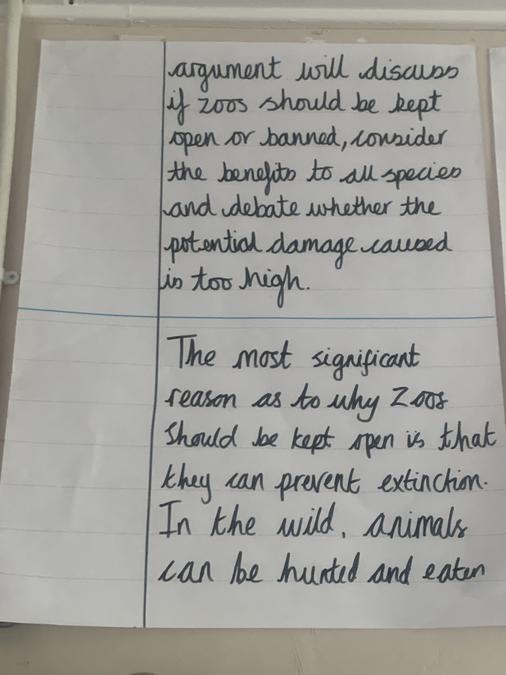 argument will discuss
if zoos should be kept
open or banned, consider
the benefits to all species
and debate whether the
potential damage caused
is too high.
The most significant
reason as to why Zoos
should be kept open is that
they can prevent extinction.
In the wild, animals
can be hunted and eaten